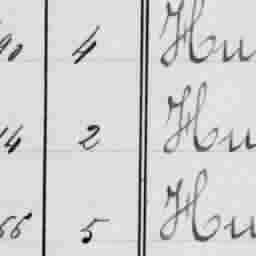 90 4 Hu
14 2 Hu
66 5 Hu